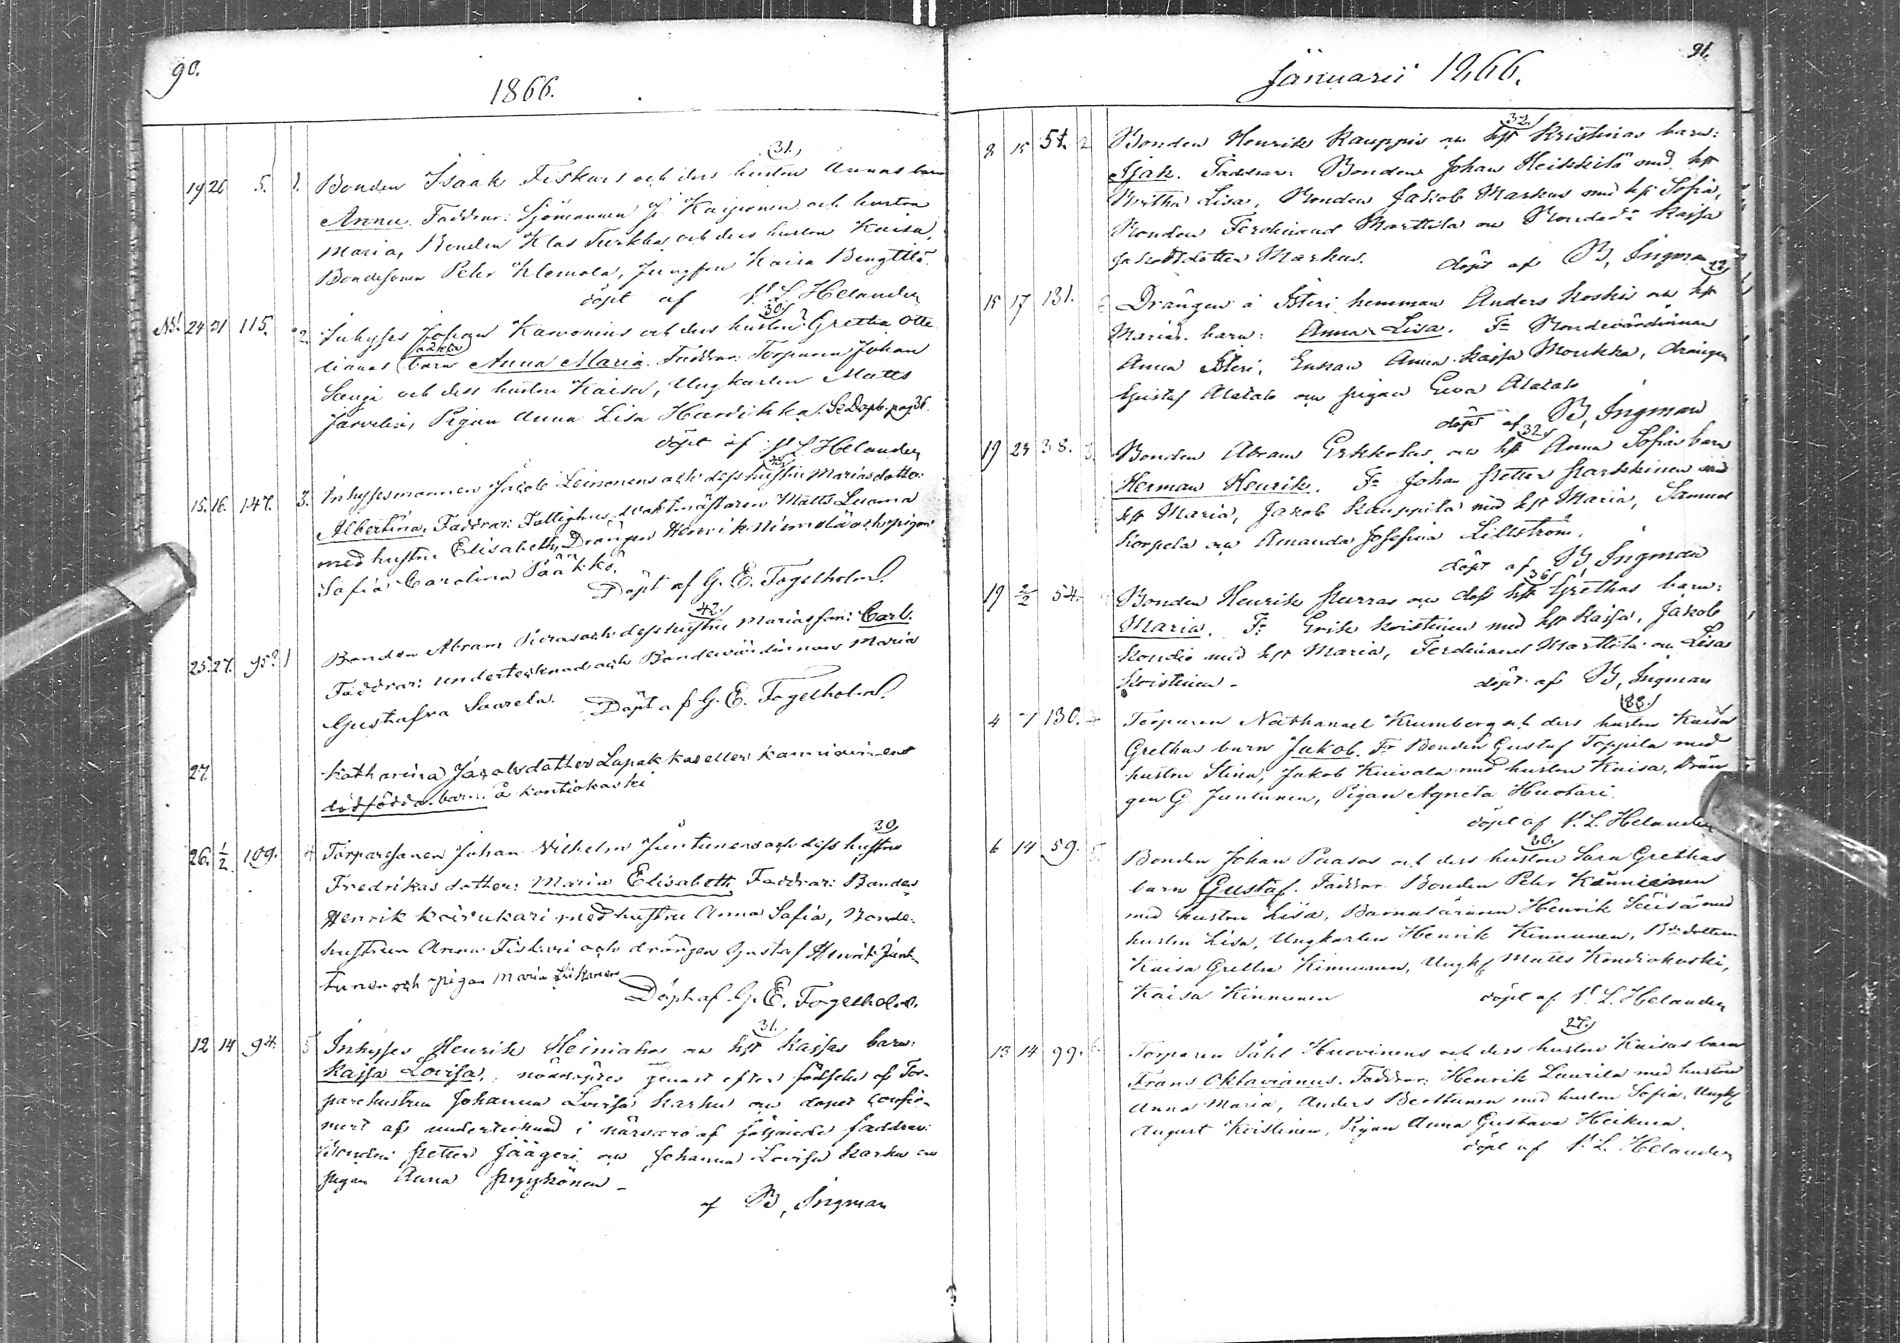 90.
1866.
31.
19 26 5. 1. Bonden Isaak Fiskars och dess hustru Annas barn
Anna. Faddrar: Sjömannen J. Kaiponen och hustru
Maria, Bonden Klas Turkka och dess hustru Kaisa,
Bondesonen Pehr Klemola, Jungfru Kaisa Bengttlö
döpt af P. L Helander
30.
Nb! 24 21 115. 2. Inhyses Johan Kanonius och dess hustru Gretha Otte
lianas oäkta barn Anna Maria. Faddrar: Torparen Johan
Saugi och dess hustru Kaisa, Ungkarlen Matts
Järvelin, Pigan Anna Lisa Harikka. Se Dopb. pag 36.
döpt af P. L Helander
15. 16. 147. 3. Inhysesmannen Jacob Leinonens och dess hustru Marias dotter:
Albertina, Faddrar: Fattighus vaktmästaren Matts Luoma
med hustru Elisabeth, Drängen Henrik Niemelä och pigan
Sofia Carolina Päätkkö.
Döpt af G. E. Fogelholm.
42.
25. 27. 95. Bonden Abram Pieras och dess hustru Marias son: Carl.
Faddrar: undertecknad och Bondevärdinnan Maria
Gustafva Saarela. Döpt af G. E. Fogelholm.
27. Katharina Jacobsdotter Lapakkas eller Kanniainens
dödfödda barn å Kontiokoski
30
26. 1/2 109. 4 Torparesonen Johan Vilhelm Juntunens och dess hustru
Fredrikas dotter: Maria Elisabeth Faddrar: Bonden
Henrik Koirukari med hustru Anna Sofia, Bonde-
hustrun Anna Fiskari och drängen Gustaf Henrik Junt-
tunen och pigan Maria Liikanen
Döpt af G. E. Fogelholm.
31.
12 14 94. 5 Inhyses Henrik Heiniahos och hst Kajsas barn:
Kajsa Lovisa, nöddöptes genast efter födseln af Tor-
parehustrun Johanna Lovisa Karhu och dopet confir-
mert af undertecknad i närvaro af följande faddrar:
Bonden Petter Jäägeri och Johanna Lovisa Karhu och
pigan Anna Pyykönen –
af B, Ingman
91.
Januarii 1866.
32.
8 15 54. 2 Bonden Henrik Kauppis och hst Kristinas barn:
Isak. Faddrar: Bonden Johan Heikkilä med hst
Britha Lisa, Bonden Jakob Markus med hst Sofia,
Bonden Ferdinand Marttila och Bondedr Kajsa
Jakobsdotter Markus. döpt af B, Ingman
15 17 131. Drängen å Isteri hemman Anders Koskis och hst
Marias barn: Anna Lisa. Fr Bondevärdinnan
Anna Isteri, Enkan Anna Kajsa Moukka, drängen
Gustaf Alatalo och pigan Eva Alatalo
döpt af B, Ingman
32.
19 23 38. Bonden Abram Erkkolas och hst Anna Sofias barn
Herman Henrik. Fr Johan Petter Karkkinen med
hst Maria, Jakob Kauppila med hst Maria, Samuel
Korpela och Amanda Josefina Lillström.
döpt af B, Ingman
36.
19 2/2 54. Bonden Henrik Purras och dess hst Grethas barn:
Maria. Fr Erik Koistinen med hst Kajsa, Jakob
Kondio med hst Maria, Ferdinand Marttila och Lisa
Koistinen – döpt af B, Ingman
38.
4 7 130. Torparen Nathanael Krumberg och dess hustru Kaisa
Grethas barn Jakob. Fr Bonden Gustaf Toppila med
hustru Stina, Jakob Kuivala med hustru Kaisa, Drän
gen G Juntunen, Pigan Agneta Huotari.
döpt af P. L. Helander
30.
6 14 59. 5 Bonden Johan Paasos och dess hustru Sara Grethas
barn Gustaf. Faddrar Bonden Pehr Känniänen
med hustru Lisa, Barnaläraren Henrik Seisä med
hustru Lisa, Ungkarlen Henrik Kinnunen, Bdedottern
Kaisa Gretha Kinnunen, Ungk Matts Kondiokoski,
Kaisa Kinnunen döpt af P. L. Helander
27.
13 14 99. 6 Torparen Påhl Huovinens och dess hustru Kaisas barn
Frans Oktavianus. Faddrar: Henrik Laurila med hustru
Anna Maria, Anders Berttunen med hustru Sofia, Ungk
August Kristinen, Pigan Anna Gustava Heikura.
döpt af P. L. Helander